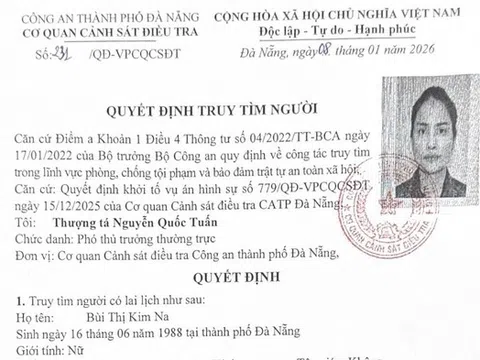 CÔNG AN THÀNH PHỐ ĐÀ NẴNG
CƠ QUAN CẢNH SÁT ĐIỀU TRA
Số: 231 /QĐ-VPCQCSĐT
CỘNG HÒA XÃ HỘI CHỦ NGHĨA VIỆT NAM
Độc lập - Tự do - Hạnh phúc
Đà Nẵng, ngày 08 tháng 01 năm 2026
QUYẾT ĐỊNH TRUY TÌM NGƯỜI
Căn cứ Điểm a Khoản 1 Điều 4 Thông tư số 04/2022/TT-BCA ngày
17/01/2022 của Bộ trưởng Bộ Công an quy định về công tác truy tìm
trong lĩnh vực phòng, chống tội phạm và bảo đảm trật tự an toàn xã hội;
Căn cứ: Quyết định khởi tố vụ án hình sự số 779/QĐ-VPCQCSĐT
ngày 15/12/2025 của Cơ quan Cảnh sát điều tra CATP Đà Nẵng;
Tôi: Thượng tá Nguyễn Quốc Tuấn
Chức danh: Phó thủ trưởng thường trực
Đơn vị: Cơ quan Cảnh sát điều tra Công an thành phố Đà Nẵng,
CƠ QUAN CẢNH SÁT ĐIỀU TRA
QUYẾT ĐỊNH
1. Truy tìm người có lai lịch như sau:
Họ tên: Bùi Thị Kim Na
Sinh ngày 16 tháng 06 năm 1988 tại thành phố Đà Nẵng
Giới tính: Nữ